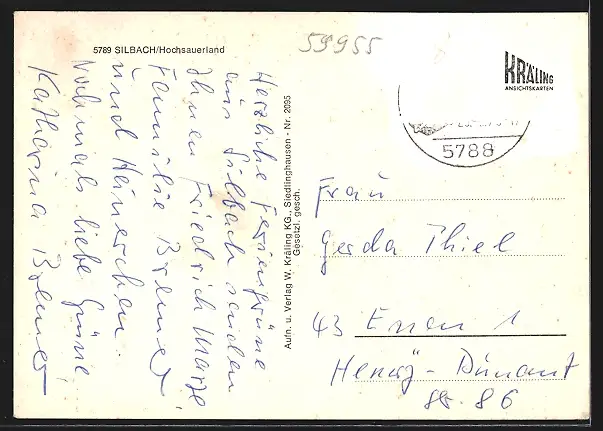 5789 SILBACH/Hochsauerland
59955
KRÄLING
ANSICHTSKARTEN
5788
Herzliche Feriengrüße
aus Silbach senden
Ihnen Friedrich
Familie
und
Nochmals liebe Grüße
Katharina
Aufn. u. Verlag W. Kräling KG., Siedlinghausen - Nr. 2095
Gesetzl. gesch.
Frau
Gerda Thiel
43 Essen 1
Henry-Dunant
Str. 86